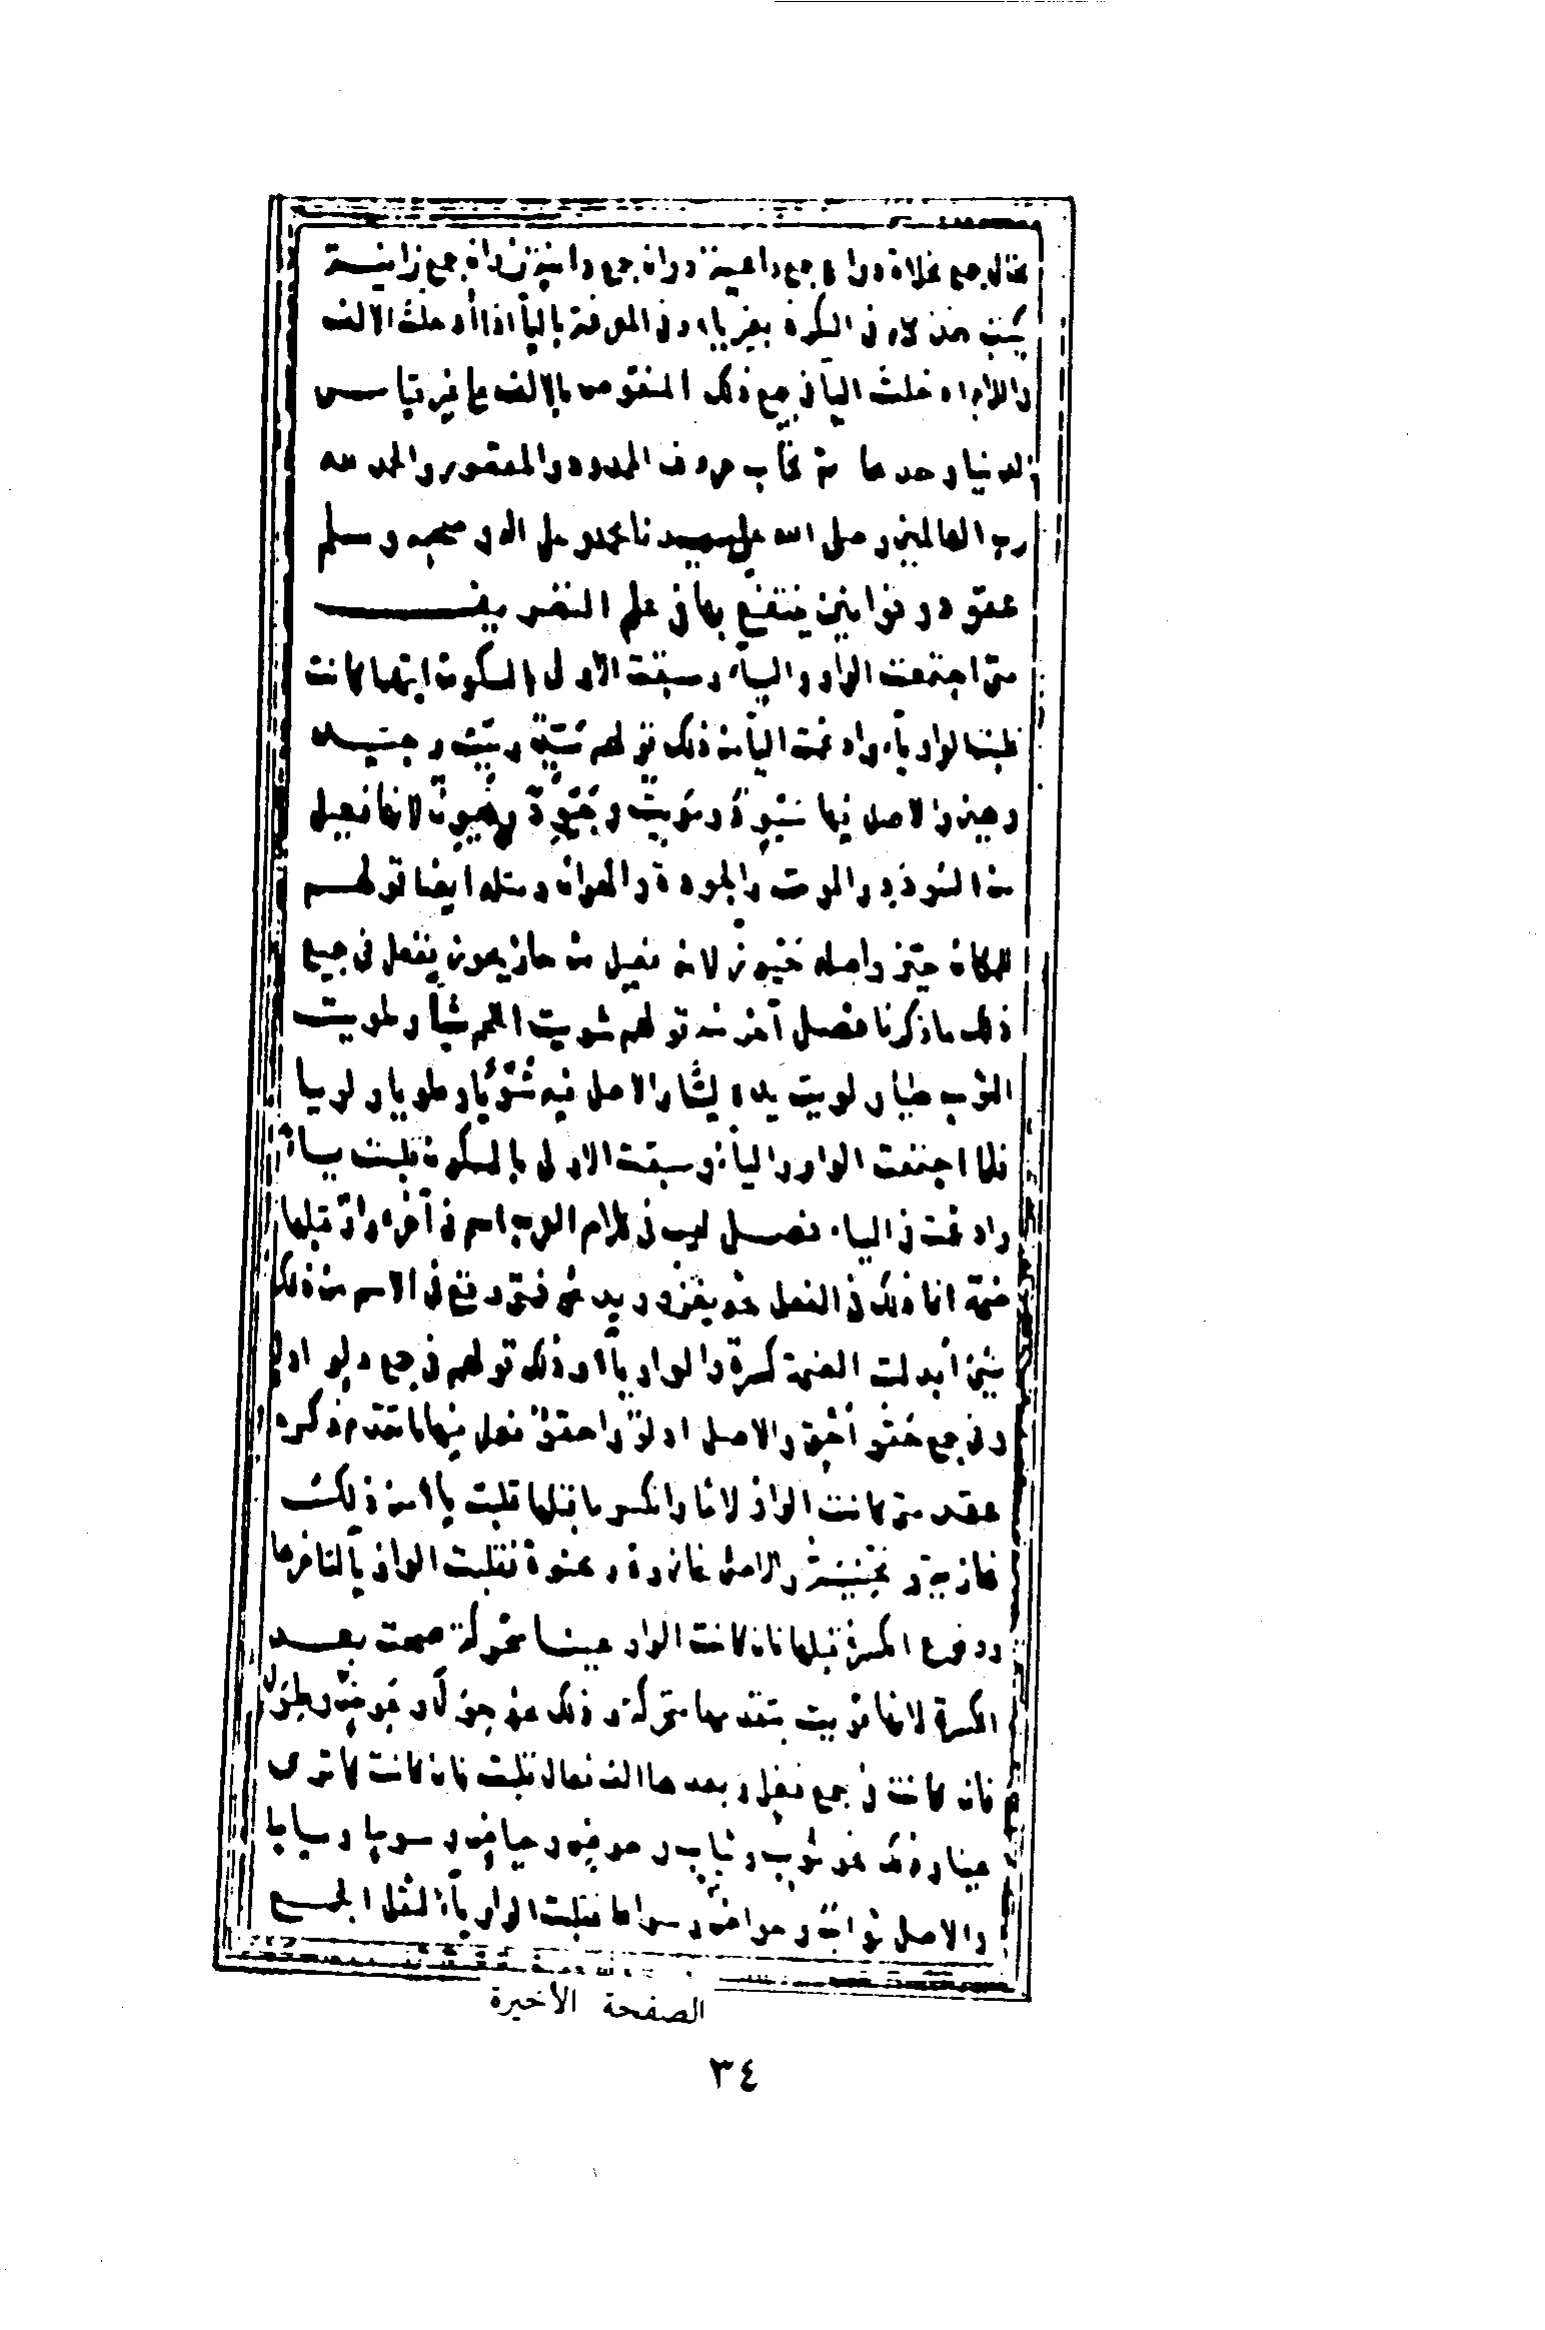 مخال جمع مخلاة ودواع جمع داعية ودوان جمع دانية وزوان جمع زانية
يكتب هذا في النكرة بغير ياء وفي المعرفة بالياء اذا أدخلت الالف
واللام ادخلت الياء في جمع ذلك المنقوص بالالف على غير قياس
الدنيا وحدها تم كتاب حروف الممدود والمقصور والحمد لله
رب العالمين وصلى الله على سيدنا محمد وعلى اله وصحبه وسلم
عقود وقوانين ينتفع بها في علم التصريف
متى اجتمعت الواو والياء وسبقت الاولى بالسكون ايتهما كانت
قلبت الواو ياء وادغمت الياء من ذلك قولهم سيد وميت وجيد
وهين والاصل فيها سيود وميوت وجيود وهيون لانها فيعل
من السودد والموت والجودة والهوان ومثله ايضا قولهم
للمكان حيز واصله حيوز لانه فيعل من حاز يحوز يفعل في جميع
ذلك ما ذكرنا فصل آخر منه قولهم شويت اللحم شيا وطويت
الثوب طيا ولويت يده ليا والاصل فيه شويا وطويا ولويا
فلما اجتمعت الواو والياء وسبقت الاولى بالسكون قلبت ياء
وادغمت في الياء فصل ليس في كلام العرب اسم في آخره واو قبلها
ضمة انما ذلك في الفعل نحو يغزو ويدعو فمتى وقع في الاسم من ذلك
شيئ أبدلت الضمة كسرة والواو ياء وذلك قولهم في جمع دلو ادل
وفي جمع حقو أحق والاصل ادلو واحقو فعل فيهما ما تقدم ذكره
عقد متى كانت الواو لاما وانكسر ما قبلها قلبت ياء من ذلك
غازية ومحنية والاصل غازوة ومحنوة فقلبت الواو ياء لتاخرها
ووقوع الكسرة قبلها فان كانت الواو عينا متحركة صحت بعد
الكسرة لانها قويت بتقدمها متحركة وذلك نحو حول وعوض وطول
فان كانت في جمع فعل وبعدها الف فعال قلبت فان كانت كما ترى
عينا وذلك نحو ثوب وثياب وحوض وحياض وسوط وسياط
والاصل ثواب وحواض وسواط فقلبت الواو ياء لثقل الجمع
الصفحة الأخيرة
٣٤